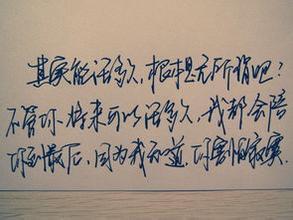 其实能活多久，根本无所谓吧？
不管你将来可以活多久，我都会陪
你到最后，因为我知道，你害怕寂寞.